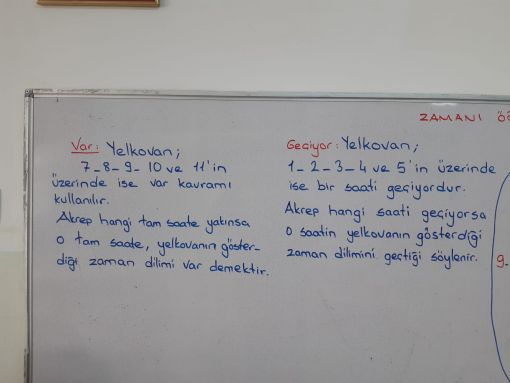 ZAMANI
Var: Yelkovan;
7_8_9_ 10 ve 11'in
üzerinde ise var kavramı
kullanılır.
Akrep hangi tam saate yakınsa
o tam saate, yelkovanın göster-
diği zaman dilimi var demektir.
Geçiyor: Yelkovan;
1_2_3_4 ve 5'in üzerinde
ise bir saati geçiyordur.
Akrep hangi saati geçiyorsa
o saatin yelkovanın gösterdiği
zaman dilimini geçtiği söylenir.